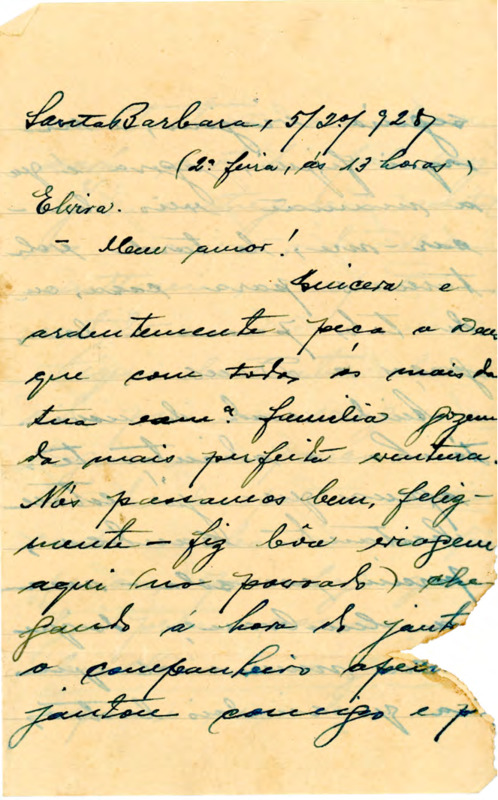 Santa Barbara, 5/2º/928
(2ª feira, ás 13 horas)
Elvira.
- Meu amor!
Sincera e
ardentemente peço a Deus
que com todos os mais da
tua exmª. familia gozem
da mais perfeita ventura.
Nós passamos bem, feliz-
mente - fiz bôa viagem
aqui (no povoado) che
gando á hora do janta
o companheiro apen
jantou comigo e p